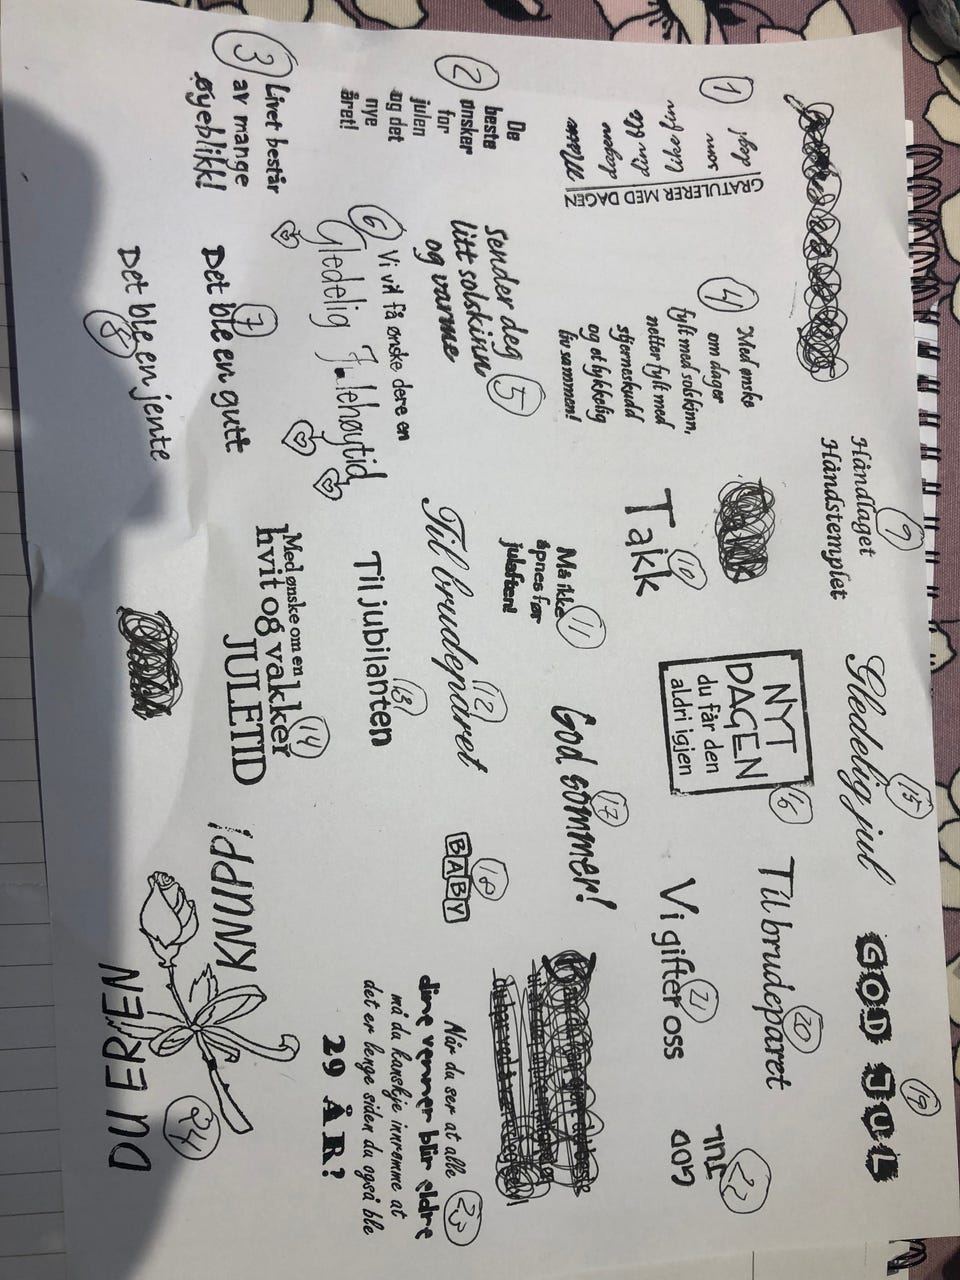 1
GRATULERER MED DAGEN
deg!
som
2
De
beste
ønsker
for
julen
og det
nye
året!
3
Livet består
av mange
øyeblikk!
4
Med ønske
om dager
fylt med solskinn,
netter fylt med
stjerneskudd
og et lykkelig
liv sammen!
5
Sender deg
litt solskinn
og varme
6
Vi vil få ønske dere en
Gledelig Julehøytid
7
Det ble en gutt
8
Det ble en jente
9
Håndlaget
Håndstemplet
10
Takk
11
Må ikke
åpnes før
juleften!
12
Til brudeparet
13
Til jubilanten
14
Med ønske om en
hvit og vakker
JULETID
15
Gledelig jul
16
NYT
DAGEN
du får den
aldri igjen
17
God sommer!
18
BABY
19
GOD JUL
20
Til brudeparet
21
Vi gifter oss
22
GOD
JUL
23
Når du ser at alle
dine venner blir eldre
må du kanskje innrømme at
det er lenge siden du også ble
29 ÅR?
24
DU ER EN
KNUPP!